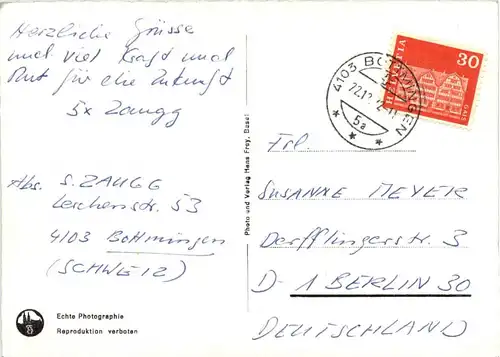 Herzliche Grüsse
und viel Kraft und
Mut für die Zukunft
5x Zaugg
Abs. S. ZAUGG
Lerchenstr. 53
4103 Bottmingen
(SCHWEIZ)
Echte Photographie
Reproduktion verboten
Photo und Verlag Hans Frey, Basel
4103 BOTTMINGEN
22.12
5a
HELVETIA
30
GAIS
Frl.
SUSANNE MEYER
Derfflingerstr. 3
D- 1 BERLIN 30
DEUTSCHLAND